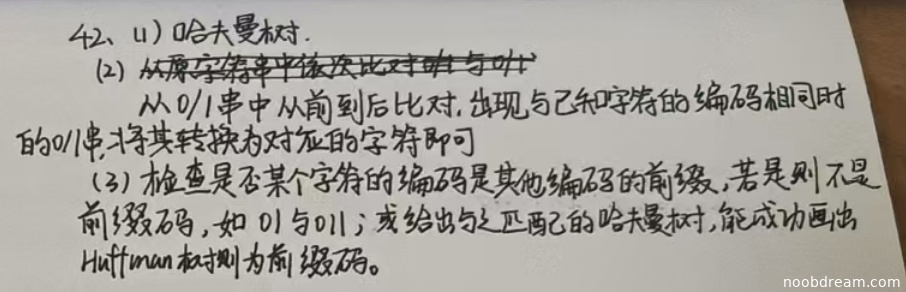 42、(1) 哈夫曼树.
(2) 从原字符串中依次比对0/1与0/1
从0/1串中从前到后比对,出现与已知字符的编码相同时
的0/1串,将其转换为对应的字符即可
(3) 检查是否某个字符的编码是其他编码的前缀,若是则不是
前缀码,如 01与011;或给出与之匹配的哈夫曼树,能成功画出
Huffman树则为前缀码。
noobdream.com